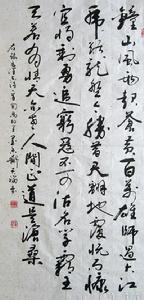 鐘山風雨起蒼黄百萬雄師過大江
虎踞龍盤今勝昔天翻地覆慨而慷
宜將剩勇追窮寇不可沽名學霸王
天若有情天亦老人間正道是滄桑